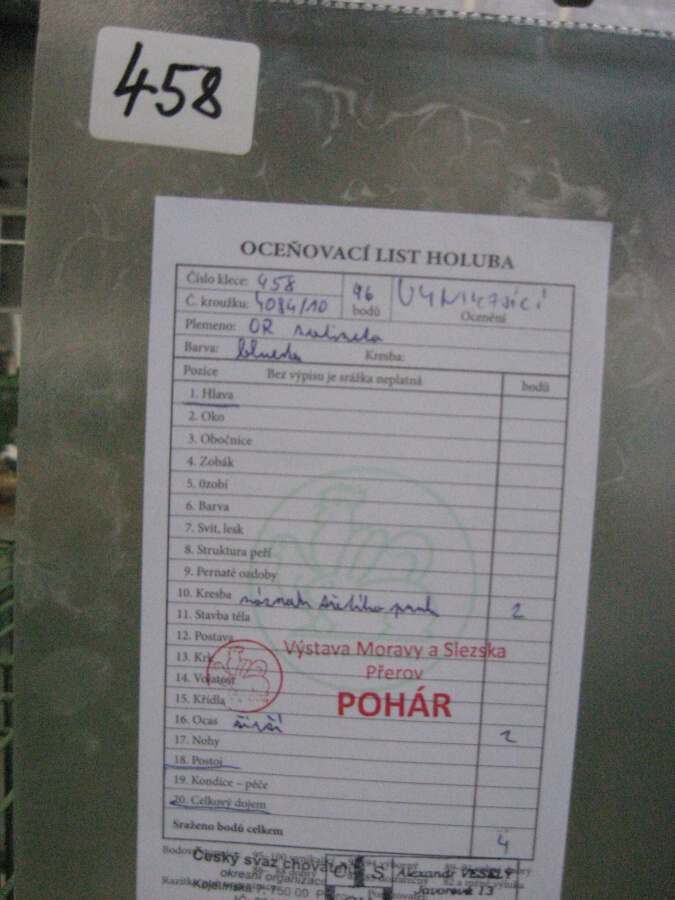 458
OCEŇOVACÍ LIST HOLUBA
Číslo klece: 458
96 bodů
Ocenění
Č. kroužku: 4084/10
Plemeno: OR
Barva:
Kresba:
Pozice Bez výpisu je srážka neplatná bodů
1. Hlava
2. Oko
3. Obočnice
4. Zobák
5. Ozobí
6. Barva
7. Svit, lesk
8. Struktura peří
9. Pernaté ozdoby
10. Kresba náznak 2
11. Stavba těla
12. Postava
13. Krk
14. Vojatost
15. Křídla
16. Ocas širší 2
17. Nohy
18. Postoj
19. Kondice – péče
20. Celkový dojem
Výstava Moravy a Slezska
Přerov
POHÁR
Sraženo bodů celkem 4
Český svaz chovatelů
okresní organizace
Alexandr VESELÝ
Javorová 13